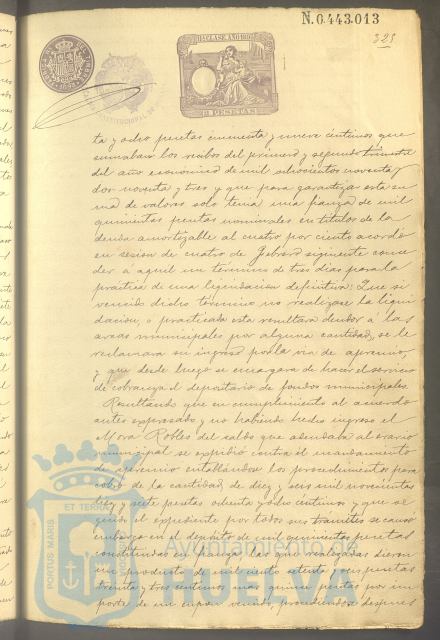 N.0.443.013
323
11ª CLASE. AÑO 1893
2 PESETAS
ta y ocho pesetas cincuenta y nueve céntimos que
sumaban los recibos del primero y segundo trimestre
del año económico de mil ochocientos noventa y
dos noventa y tres y que para garantizar esta su
ma de valores solo tenia una fianza de mil
quinientas pesetas nominales en titulos de la
deuda amortizable al cuatro por ciento acordó
en sesion de cuatro de Febrero siguiente conce
der á aquel un término de tres dias para la
práctica de una liquidacion definitiva: Que si
vencido dicho término no realizase la liqui
dacion, o practicada esta resultara deudor á las
arcas municipales por alguna cantidad, se le
reclamara su ingreso por la via de apremio,
y que desde luego se encargara de hacer el servicio
de cobranza el depositario de fondos municipales.
Resultando que en cumplimiento al acuerdo
antes expresado y no habiendo hecho ingreso el
Mora Robles del saldo que adeudaba al erario
municipal se expidió contra él mandamiento
de apremio entablándose los procedimientos para
cobro de la cantidad de diez y seis mil novecientas
diez y siete pesetas ochenta y dos céntimos y que se
guido el expediente por todos sus tramites se causó
embargo en el depósito de mil quinientas pesetas
constituido en la que realizadas dieron
un producto de mil ciento setenta y seis pesetas
treinta y tres céntimos mas quince pesetas por im
porte de un cupon vencido, procediendose despues
PORTUS MARIS
ET TERRÆ
Ayuntamiento de
HUELVA